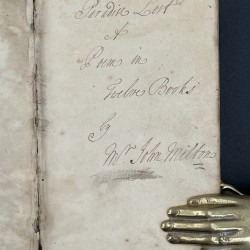 Paradise Lost
A
Poem in
Twelve Books
By
Mr. John Milton